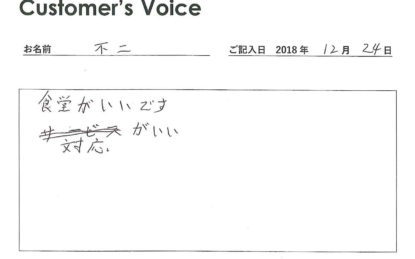 Customer's Voice
お名前 不二 ご記入日 2018年 12月 24日
食堂がいいです
サービスがいい
対応.